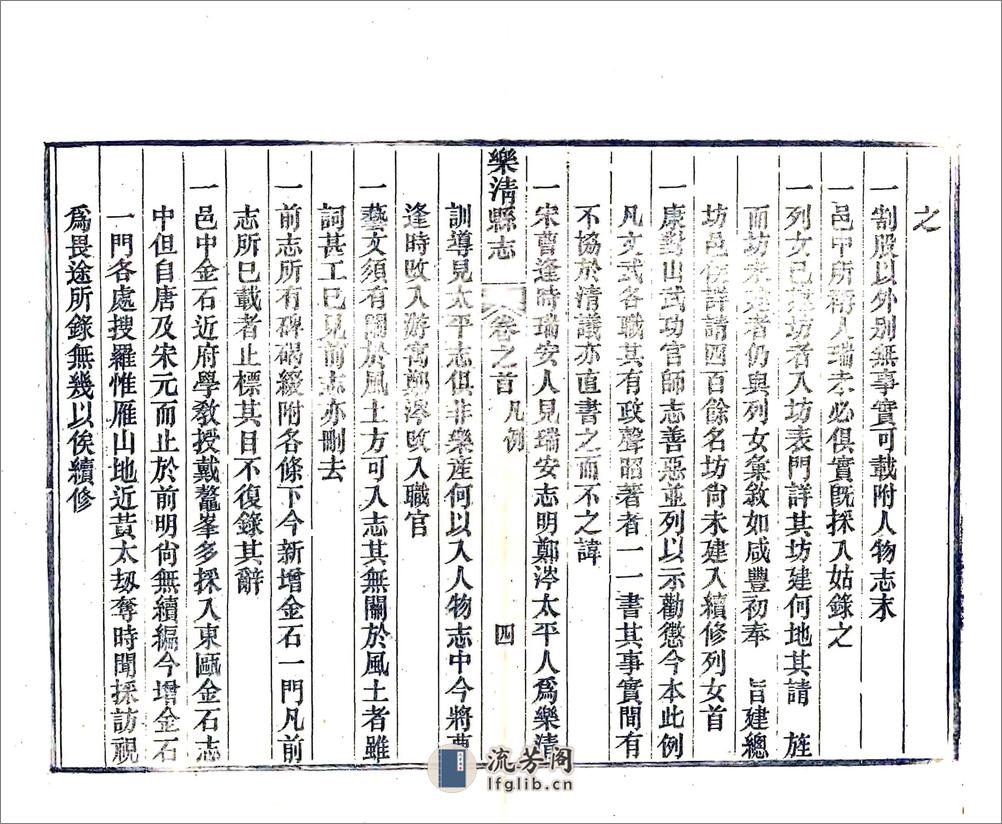 之
一割股以外別無事實可載附人物志末
一邑中所稱人瑞未必俱實旣採入姑錄之
一列女已建坊者入坊表門詳其坊建何地其請 旌
而坊未建者仍與列女彙敘如咸豐初奉 旨建總
坊邑侯詳請四百餘名坊尙未建入續修列女首
一康對山武功官師志善惡並列以示勸懲今本此例
凡文武各職其有政聲昭著者一一書其事實間有
不協於清議亦直書之而不之諱
一宋曹逢時瑞安人見瑞安志明鄭涔太平人爲樂清
樂清縣志 卷之首 凡例 四
訓導見太平志俱非樂產何以入人物志中今將曹
逢時改入游寓鄭涔改入職官
一藝文須有關於風土方可入志其無關於風土者雖
詞甚工已見前志亦刪去
一前志所有碑碣綴附各條下今新增金石一門凡前
志所已載者止標其目不復錄其辭
一邑中金石近府學敎授戴鼇峯多採入東甌金石志
中但自唐及宋元而止於前明尙無續編今增金石
一門各處搜羅惟雁山地近黃太刼奪時聞採訪視
爲畏途所錄無幾以俟續修
流芳阁
lfglib.cn